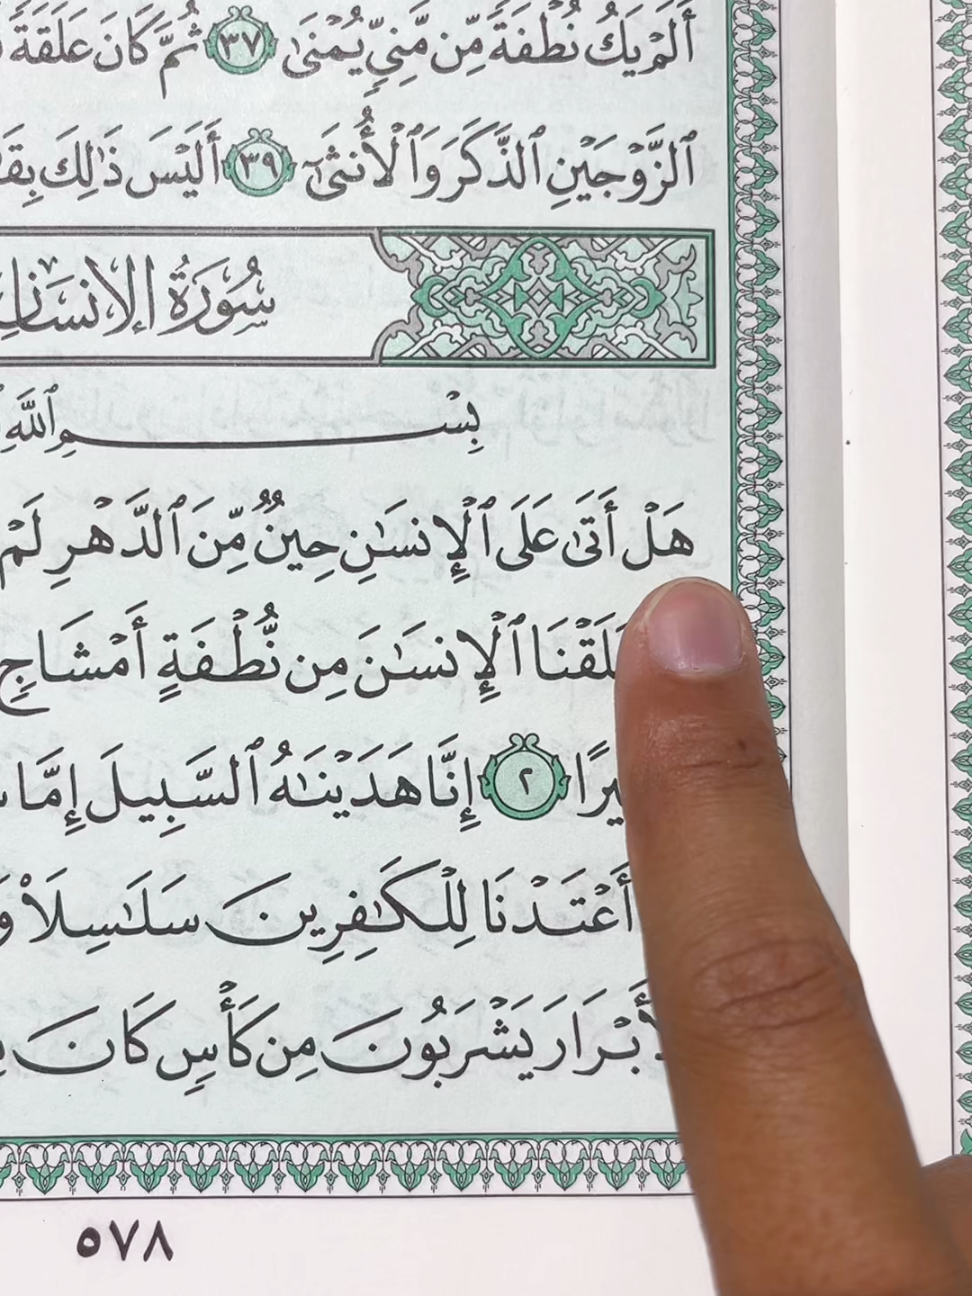 أَلَمْ يَكُ نُطْفَةً مِّن مَّنِيٍّ يُمْنَىٰ ٣٧ ثُمَّ كَانَ عَلَقَةً
ٱلزَّوْجَيْنِ ٱلذَّكَرَ وَٱلْأُنثَىٰٓ ٣٩ أَلَيْسَ ذَٰلِكَ
سُورَةُ الإِنسَانِ
بِسْمِ ٱللَّهِ
هَلْ أَتَىٰ عَلَى ٱلْإِنسَٰنِ حِينٌ مِّنَ ٱلدَّهْرِ لَمْ
ٱلْإِنسَٰنَ مِن نُّطْفَةٍ أَمْشَاجٍ
٢ إِنَّا هَدَيْنَٰهُ ٱلسَّبِيلَ إِمَّا
أَعْتَدْنَا لِلْكَٰفِرِينَ سَلَٰسِلَا۟
يَشْرَبُونَ مِن كَأْسٍ كَانَ
٥٧٨